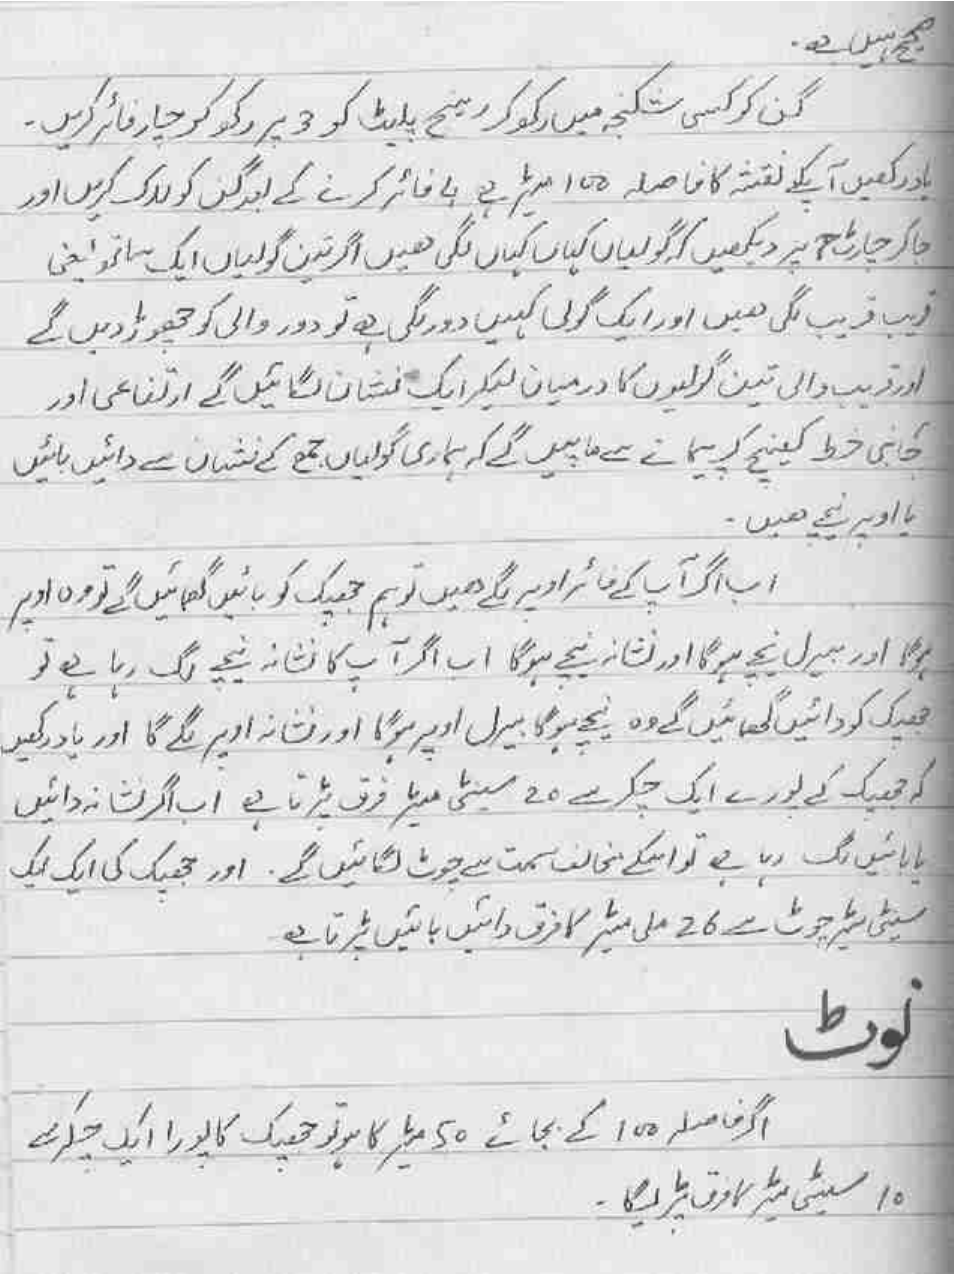 صحیح نہیں ہے۔
گن کو کسی شکنجہ میں رکھ کر رینج پلیٹ کو 3 پر رکھ کر چار فائر کریں۔
یاد رکھیں آپکے نقشہ کا فاصلہ 100 میٹر ہے فائر کرنے کے بعد گن کو لاک کریں اور
جا کر چارٹ پر دیکھیں کہ گولیاں کہاں کہاں لگی ھیں اگر تین گولیاں ایک ساتھ یعنی
قریب قریب لگی ھیں اور ایک گولی کہیں دور لگی ہے تو دور والی کو چھوڑ دیں گے
اور قریب والی تین گولیوں کا درمیان لیکر ایک نشان لگائیں گے ارتفاعی اور
جانبی خط کھینچ کر پیمانے سے ماپیں گے کہ ہماری گولیاں جمع کے نشان سے دائیں بائیں
یا اوپر نیچے ھیں۔
اب اگر آپ کے فائر اوپر لگے ھیں تو ہم جھپک کو بائیں گھمائیں گے تو وہ اوپر
ہوگا اور بیرل نیچے ہوگا اور نشانہ نیچے ہوگا اب اگر آپ کا نشانہ نیچے لگ رہا ہے تو
جھپک کو دائیں گھمائیں گے وہ نیچے ہوگا بیرل اوپر ہوگا اور نشانہ اوپر لگے گا اور یاد رکھیں
کہ جھپک کے پورے ایک چکر سے 20 سینٹی میٹر فرق پڑتا ہے اب اگر نشانہ دائیں
یا بائیں لگ رہا ہے تو اسکے مخالف سمت سے چوٹ لگائیں گے۔ اور جھپک کی ایک ایک
سینٹی میٹر چوٹ سے 26 ملی میٹر کا فرق دائیں بائیں پڑتا ہے
نوٹ
اگر فاصلہ 100 کے بجائے 50 میٹر کا ہو تو جھپک کا پورا ایک چکر سے
10 سینٹی میٹر کا فرق پڑیگا۔